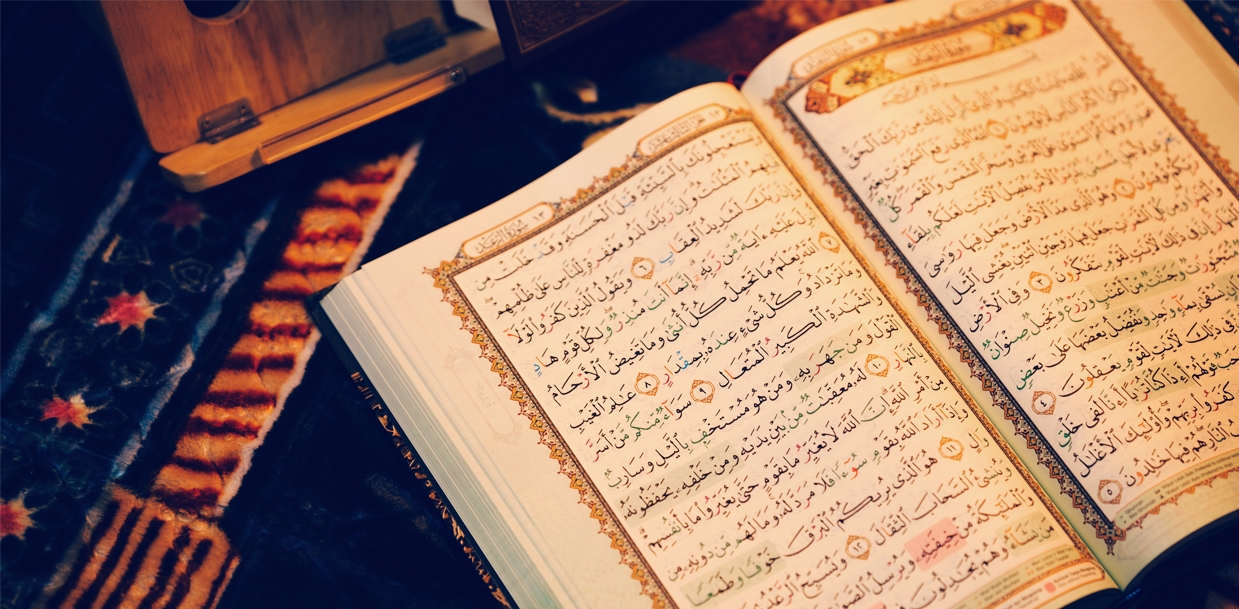 سُورَةُ الرَّعْدِ
الٓمٓر تِلْكَ ءَايَٰتُ الْكِتَٰبِ وَالَّذِىٓ أُنزِلَ إِلَيْكَ مِن رَّبِّكَ الْحَقُّ
وَلَٰكِنَّ أَكْثَرَ النَّاسِ لَا يُؤْمِنُونَ ١ اللَّهُ الَّذِى رَفَعَ السَّمَٰوَٰتِ بِغَيْرِ
عَمَدٍ تَرَوْنَهَا ثُمَّ اسْتَوَىٰ عَلَى الْعَرْشِ وَسَخَّرَ الشَّمْسَ وَالْقَمَرَ كُلٌّ
يَجْرِى لِأَجَلٍ مُّسَمًّى يُدَبِّرُ الْأَمْرَ يُفَصِّلُ الْءَايَٰتِ لَعَلَّكُم بِلِقَآءِ
رَبِّكُمْ تُوقِنُونَ ٢ وَهُوَ الَّذِى مَدَّ الْأَرْضَ وَجَعَلَ فِيهَا رَوَٰسِىَ
وَأَنْهَٰرًا وَمِن كُلِّ الثَّمَرَٰتِ جَعَلَ فِيهَا زَوْجَيْنِ اثْنَيْنِ يُغْشِى الَّيْلَ
النَّهَارَ إِنَّ فِى ذَٰلِكَ لَءَايَٰتٍ لِّقَوْمٍ يَتَفَكَّرُونَ ٣ وَفِى الْأَرْضِ
مُّتَجَٰوِرَٰتٌ وَجَنَّٰتٌ مِّنْ أَعْنَٰبٍ وَزَرْعٌ وَنَخِيلٌ صِنْوَانٌ
يُسْقَىٰ بِمَآءٍ وَٰحِدٍ وَنُفَضِّلُ بَعْضَهَا عَلَىٰ بَعْضٍ
فِى ذَٰلِكَ لَءَايَٰتٍ لِّقَوْمٍ يَعْقِلُونَ ٤
قَوْلُهُمْ أَءِذَا كُنَّا تُرَٰبًا أَءِنَّا لَفِى خَلْقٍ
كَفَرُوا۟ بِرَبِّهِمْ وَأُو۟لَٰٓئِكَ الْأَغْلَٰلُ
النَّارِ هُمْ فِيهَا خَٰلِدُونَ ٥
سُورَةُ الرَّعْدِ ١٣
وَيَسْتَعْجِلُونَكَ بِالسَّيِّئَةِ قَبْلَ الْحَسَنَةِ وَقَدْ خَلَتْ مِن
قَبْلِهِمُ الْمَثُلَٰتُ وَإِنَّ رَبَّكَ لَذُو مَغْفِرَةٍ لِّلنَّاسِ عَلَىٰ ظُلْمِهِمْ
وَإِنَّ رَبَّكَ لَشَدِيدُ الْعِقَابِ ٦ وَيَقُولُ الَّذِينَ كَفَرُوا۟ لَوْلَآ
أُنزِلَ عَلَيْهِ ءَايَةٌ مِّن رَّبِّهِۦٓ إِنَّمَآ أَنتَ مُنذِرٌ وَلِكُلِّ قَوْمٍ هَادٍ
٧ اللَّهُ يَعْلَمُ مَا تَحْمِلُ كُلُّ أُنثَىٰ وَمَا تَغِيضُ الْأَرْحَامُ
وَمَا تَزْدَادُ وَكُلُّ شَىْءٍ عِندَهُۥ بِمِقْدَارٍ ٨ عَٰلِمُ الْغَيْبِ
وَالشَّهَٰدَةِ الْكَبِيرُ الْمُتَعَالِ ٩ سَوَآءٌ مِّنكُم مَّنْ أَسَرَّ
الْقَوْلَ وَمَن جَهَرَ بِهِۦ وَمَنْ هُوَ مُسْتَخْفٍ بِالَّيْلِ وَسَارِبٌ
بِالنَّهَارِ ١٠ لَهُۥ مُعَقِّبَٰتٌ مِّنۢ بَيْنِ يَدَيْهِ وَمِنْ خَلْفِهِۦ يَحْفَظُونَهُۥ
مِنْ أَمْرِ اللَّهِ إِنَّ اللَّهَ لَا يُغَيِّرُ مَا بِقَوْمٍ حَتَّىٰ يُغَيِّرُوا۟ مَا بِأَنفُسِهِمْ
وَإِذَآ أَرَادَ اللَّهُ بِقَوْمٍ سُوٓءًا فَلَا مَرَدَّ لَهُۥ وَمَا لَهُم مِّن دُونِهِۦ مِن
وَالٍ ١١ هُوَ الَّذِى يُرِيكُمُ الْبَرْقَ خَوْفًا وَطَمَعًا
وَيُنشِئُ السَّحَابَ الثِّقَالَ ١٢ وَيُسَبِّحُ الرَّعْدُ
وَالْمَلَٰٓئِكَةُ مِنْ خِيفَتِهِۦ وَيُرْسِلُ الصَّوَٰعِقَ
مَن يَشَآءُ وَهُمْ يُجَٰدِلُونَ